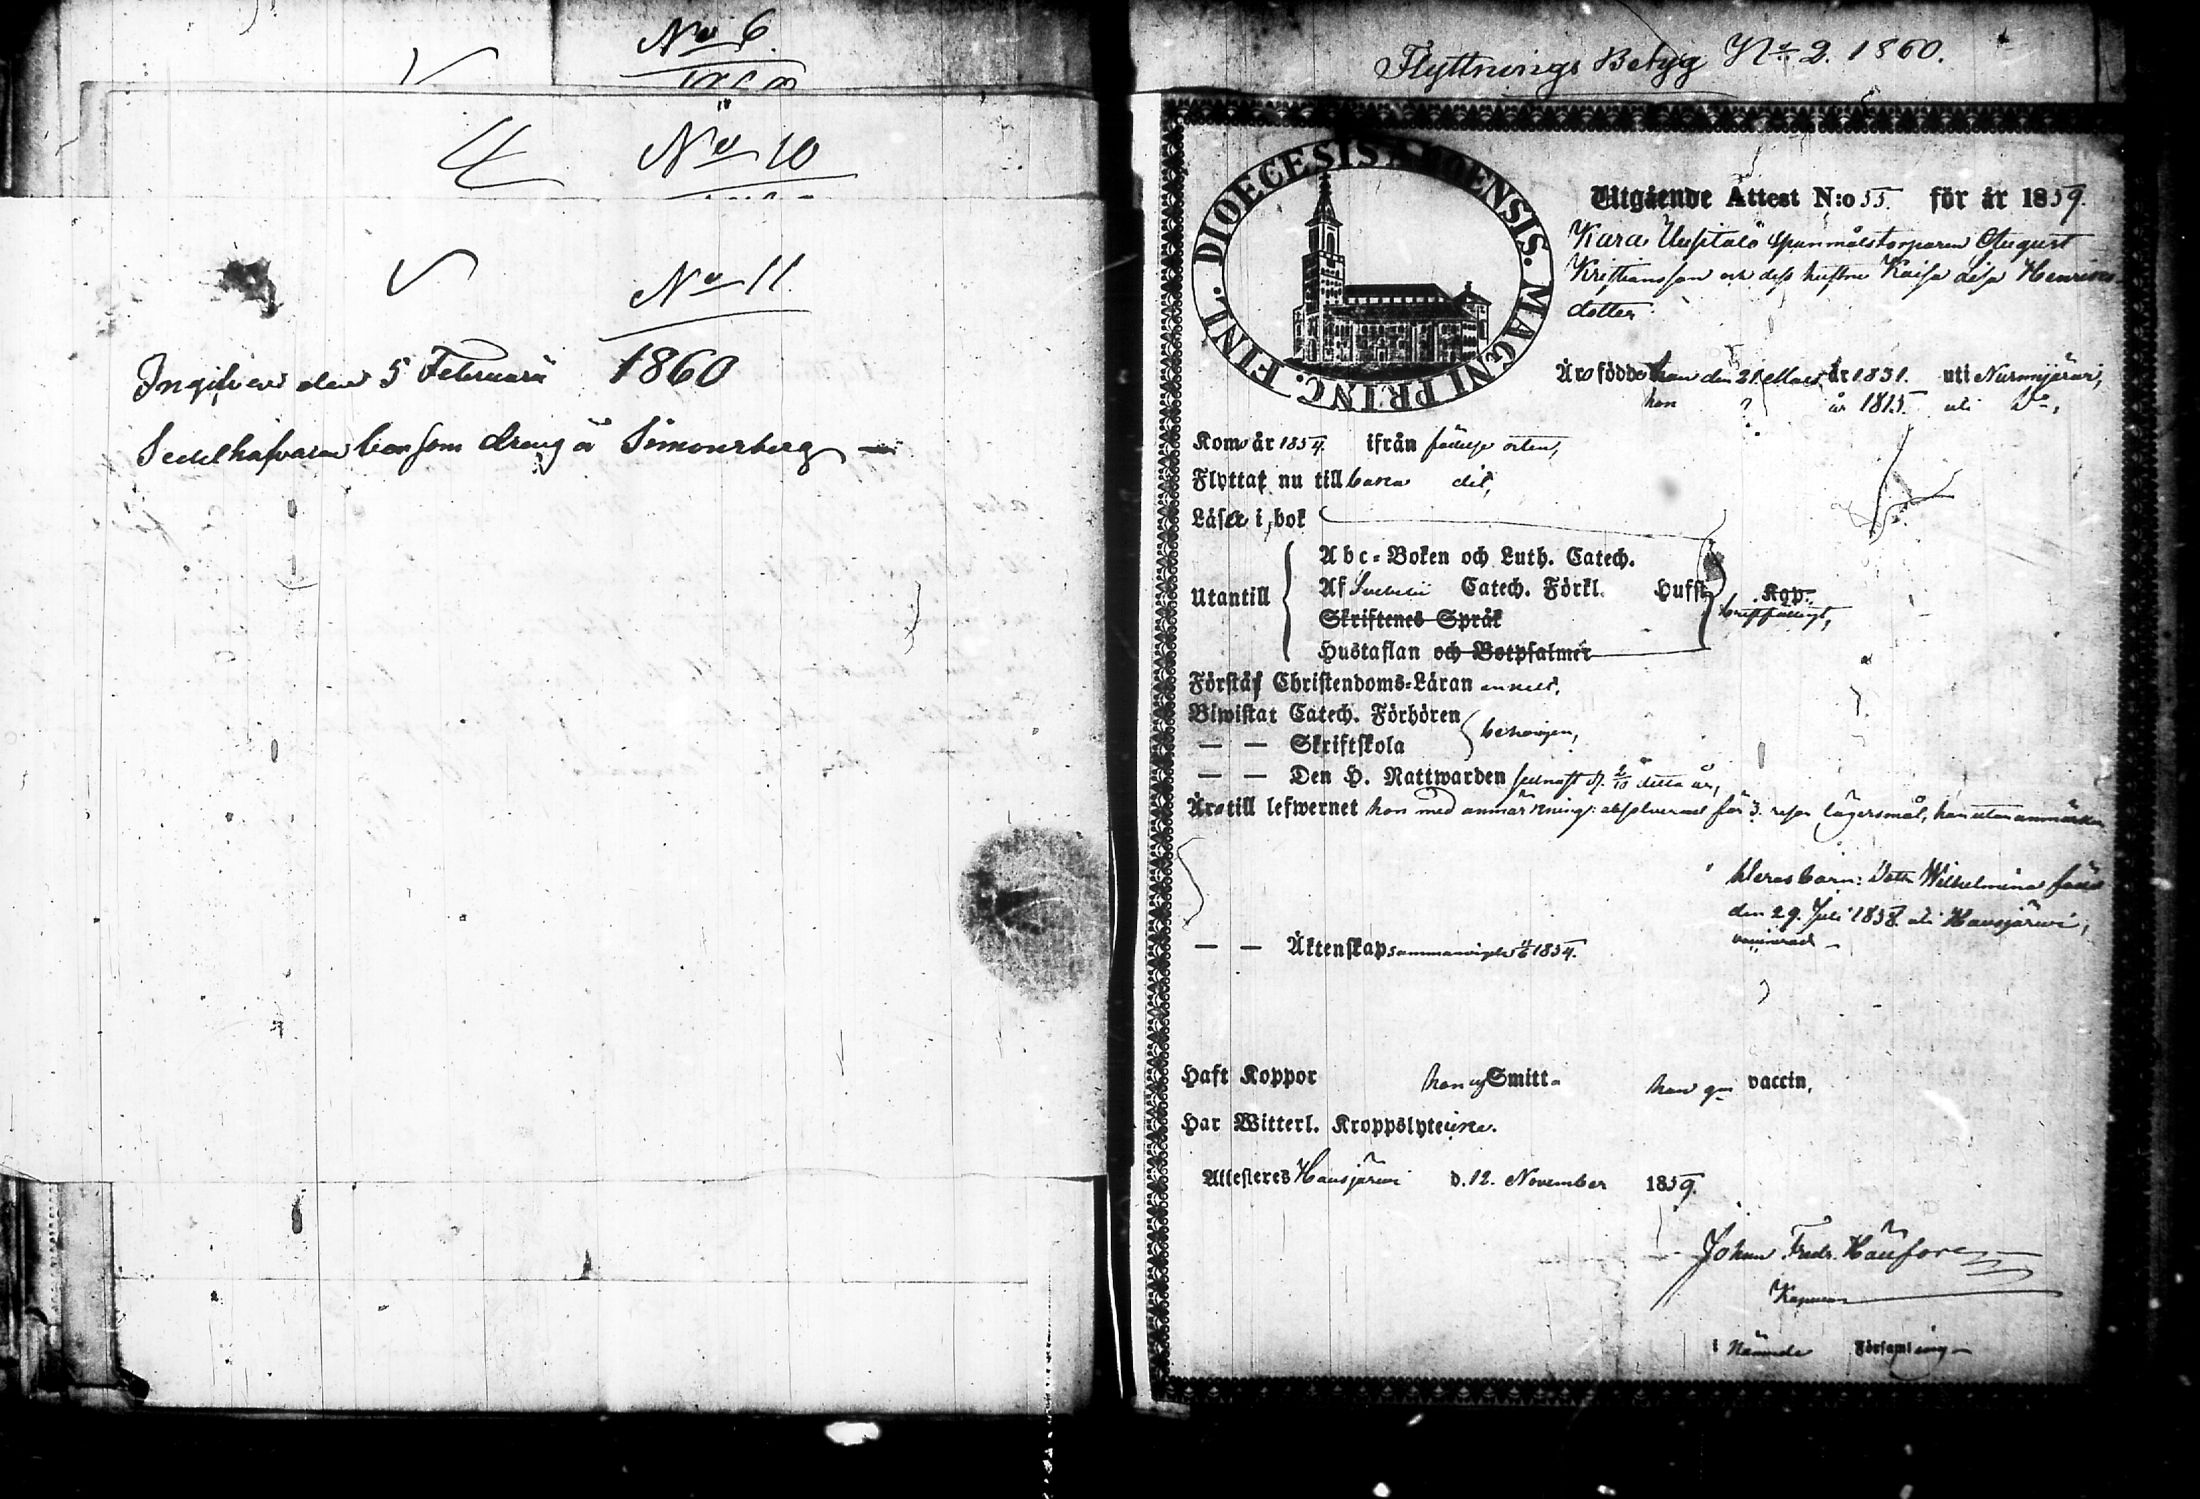 No 6.
No 10
No 11.
Ingifven den 5 Februari 1860
Sedelhafvaren bor som dreng å Simonsberg
Flyttnings Betyg No 2. 1860.
DIOECESIS ABOENSIS. MAGNI PRINC. FINL.
Utgående Attest N:o 55. för år 1859.
Kara Uusitalo spanmålstorparen August
Kristiansson och dess hustru Kaisa Lisa Henriks-
dotter
Äro födde han den 21 Mars år 1831. uti Nurmijärvi,
hon ? år 1815. uti Do,
Kom år 1854. ifrån födelse orten,
Flyttat nu tillbaka dit,
Läser i bok
Utantill
Abc-Boken och Luth. Catech.
Af Svebelii Catech. Förkl. Hufst. Kap.
Skriftenes Språk
Hustaflan och Botpsalmer
bristfälligt,
Förstår Christendoms-Läran enkelt,
Biwistat Catech. Förhören
— — Skriftskola
behörigen,
— — Den H. Nattwarden sednast d. 2/10 detta år,
Äro till lefwernet hon med anmärkning: absolverad för 3. resan lägersmål, han utan anmärkn
Deras barn: Dottr Wilhelmina född
den 29. Juli 1858. uti Hausjärvi,
vaccinerad
— — Äktenskap sammanvigde 1854.
Haft Koppor hon eg Smitta han gm vaccin,
Har Witterl. Kroppslyte icke.
Attesteres Hausjärvi d. 12. November 1859.
Johan Fredr.
i Nämnde Församling